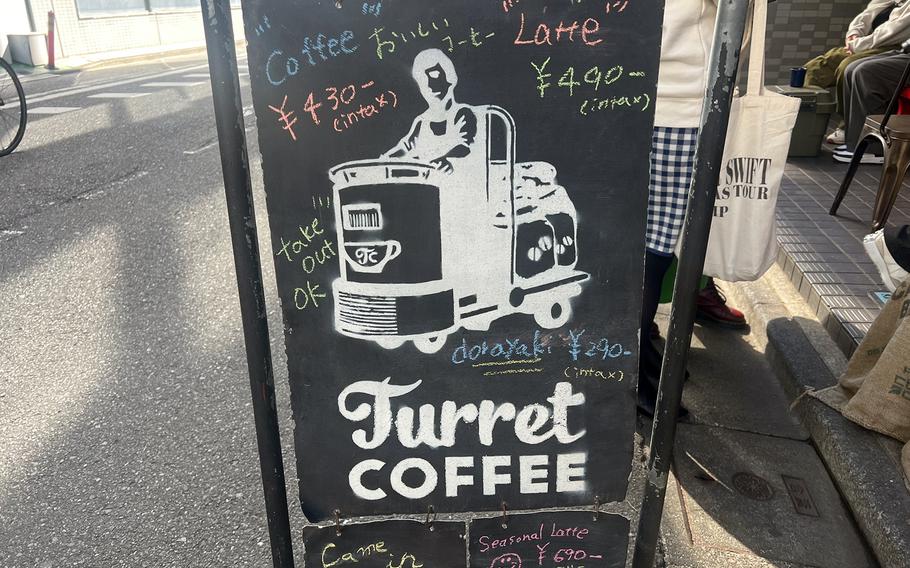 Coffee
おいしい
コーヒー
Latte
¥430-
(intax)
¥490-
(intax)
take
out
OK
Tc
dorayaki ¥290-
(intax)
Turret
COFFEE
Came
in
Seasonal Latte
¥690-
SWIFT
AS TOUR